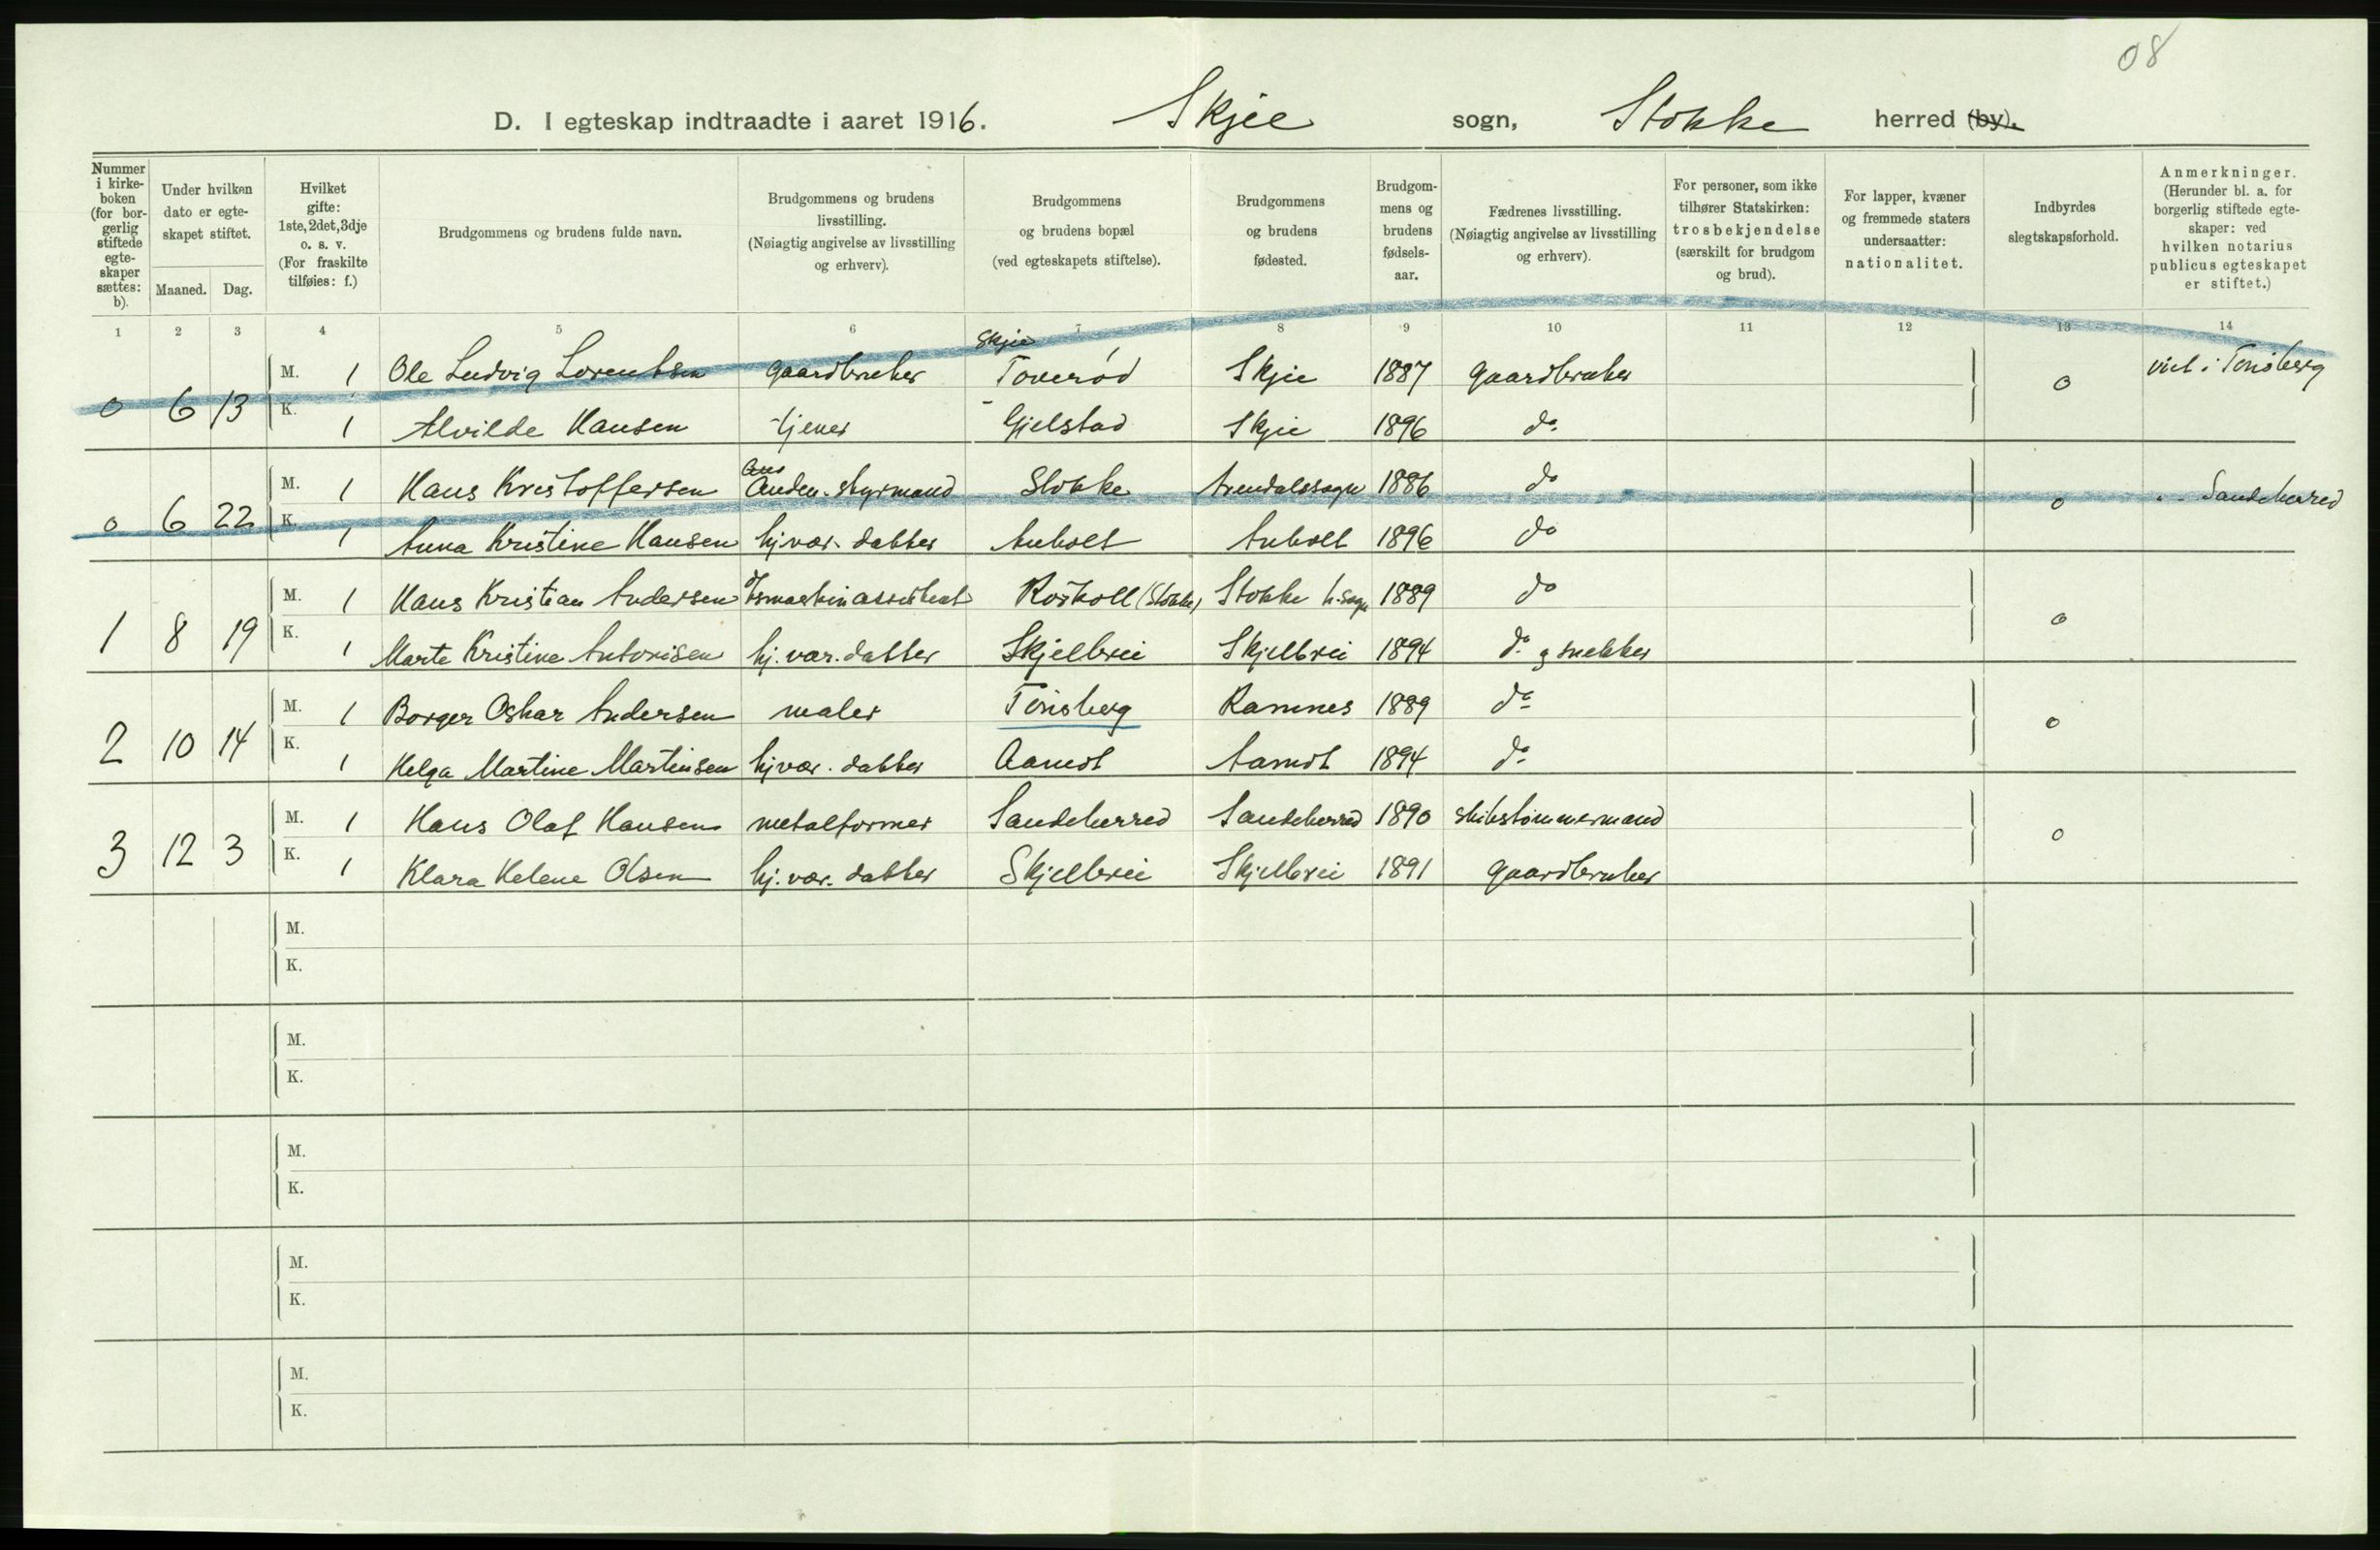 08
D. I egteskap indtraadte i aaret 1916. Skjee sogn, Stokke herred (by).
Nummer i kirke- boken (for bor- gerlig stiftede egte- skaper sættes: b).
Under hvilken dato er egte- skapet stiftet.
Maaned. Dag.
Hvilket gifte: 1ste, 2det, 3dje o. s. v. (For fraskilte tilføies: f.)
Brudgommens og brudens fulde navn.
Brudgommens og brudens livsstilling. (Nøiagtig angivelse av livsstilling og erhverv).
Brudgommens og brudens bopæl (ved egteskapets stiftelse).
Brudgommens og brudens fødested.
Brudgom- mens og brudens fødsels- aar.
Fædrenes livsstilling. (Nøiagtig angivelse av livsstilling og erhverv).
For personer, som ikke tilhører Statskirken: trosbekjendelse (særskilt for brudgom og brud).
For lapper, kvæner og fremmede staters undersaatter: nationalitet.
Indbyrdes slegtskapsforhold.
Anmerkninger. (Herunder bl. a. for borgerlig stiftede egte- skaper: ved hvilken notarius publicus egteskapet er stiftet.)
1 2 3 4 5 6 7 8 9 10 11 12 13 14
Skjee
M. 1 Ole Ludvig Lorentsen gaardbruker Toverød Skjee 1887 gaardbruker viet i Tønsberg
0 6 13 0
K. 1 Alvilde Hansen tjener Gjelstad Skjee 1896 do
M. 1 Hans Kristoffersen Anden-styrmand Stokke Arendalssogn 1886 do " - Sandeherred
0 6 22 0
K. 1 Anna Kristine Hansen hj.vær. datter Anholt Anholt 1896 do
M. 1 Hans Kristian Andersen maskinassistent Roskoll (Stokke) Stokke h.sogn 1889 do
1 8 19 0
K. 1 Marte Kristine Antonisen hj. vær. datter Skjelbrei Skjelbrei 1894 do g snekker
M. 1 Borger Oskar Andersen maler Tønsberg Ramnes 1889 do
2 10 14 0
K. 1 Helga Martine Martinsen hj.vær. datter Aamot Aamot 1894 do
M. 1 Hans Olaf Hansen metalformer Sandeherred Sandeherred 1890 skibstømmermand
3 12 3 0
K. 1 Klara Helene Olsen hj. vær. datter Skjelbrei Skjelbrei 1891 gaardbruker
M.
K.
M.
K.
M.
K.
M.
K.
M.
K.